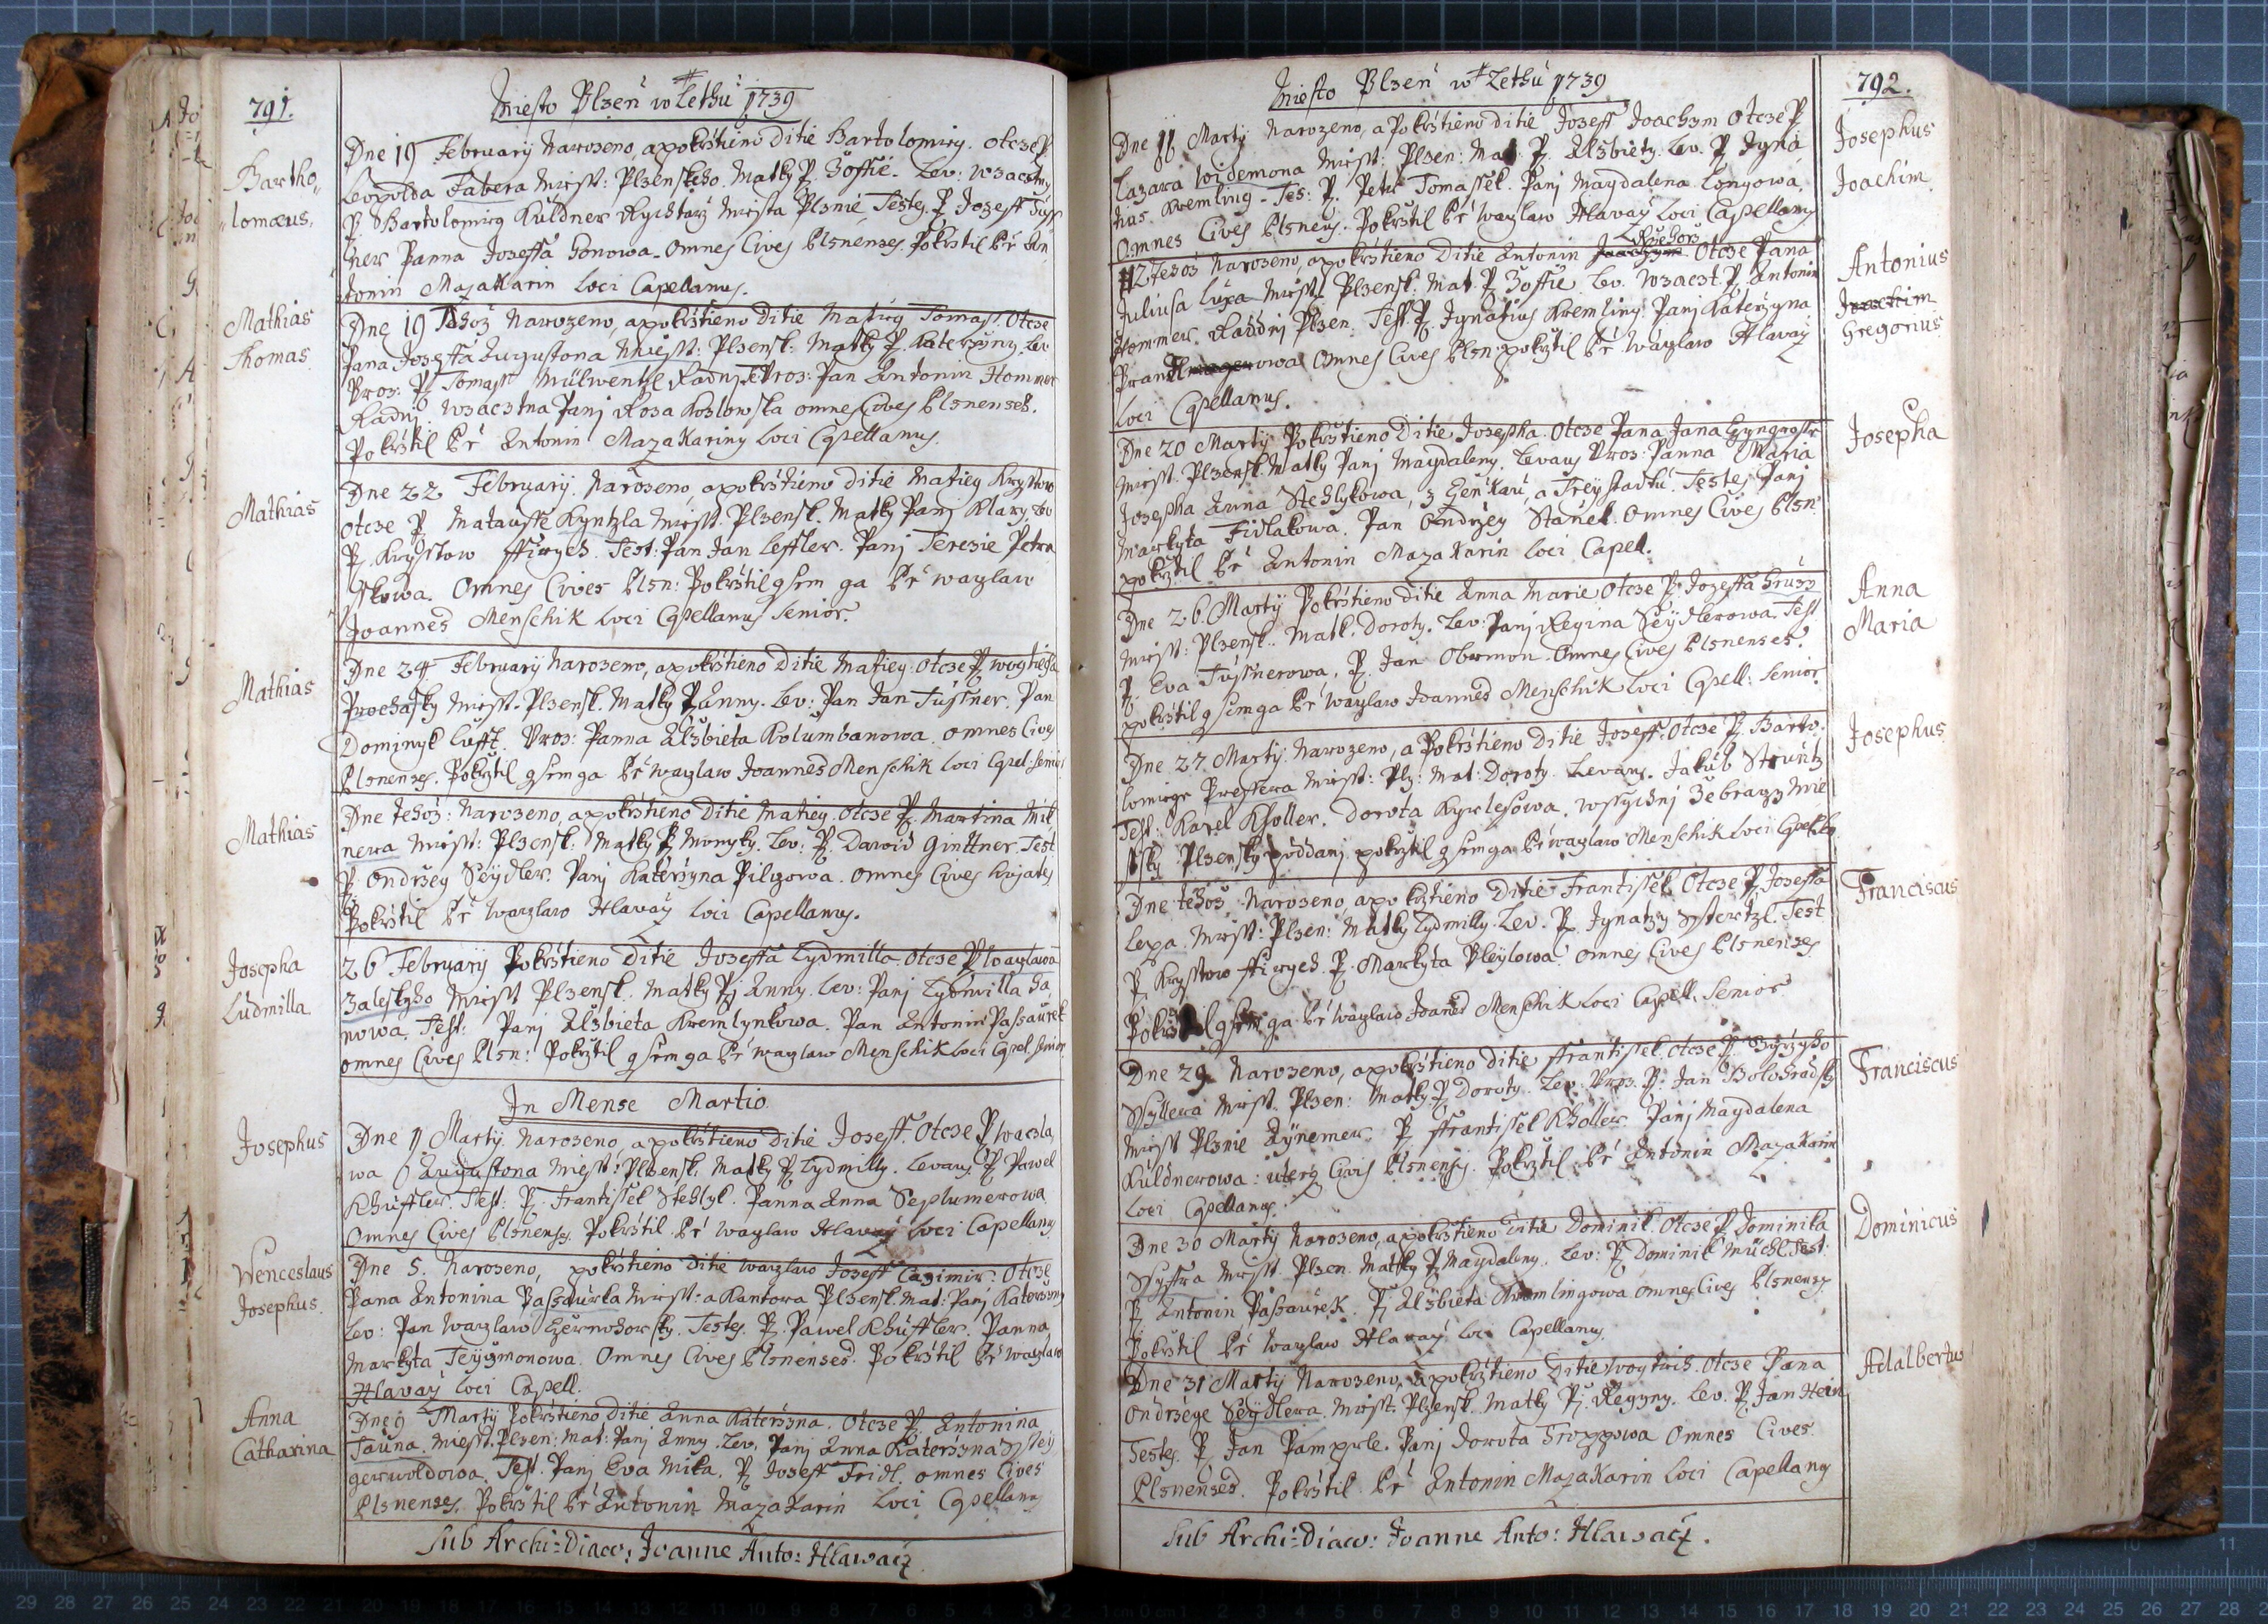 791.
Miesto Plzen w Lethu 1739
Bartho„
„lomæus,
Dne 19 February Narozeno, a pokrstieno Ditie Bartolomieg. Otcze P
Leopolda Fabera Miesst: Plzenskeho. Matky P. Zoffie. Lev: Wzactny
P. Bartolomieg Küldner Rychtarz Miesta Plznie, Testes. P. Jozeff
ner Panna Joseffa Honowa. Omnes Cives Plsnenses. Pokrstil Pr An
tonin Mazakarin Loci Capellanus.
Mathias
Thomas
Dne 19 Tehoz Narozeno, a pokrstieno Ditie Matieg Tomass. Otcze
Pana Jozeffa Augustona Miesst: Plzensk: Matky P. Katerzyny. Lev
Uroz: P. Tomass Mülwentzl Radnj T: Uroz: Pan Antonin Hommer
Radnj. Wzactna Panj Roza Kozlowska omnes Cives Plsnenses.
Pokrstil Pr Antonin Mazakariny Loci Capellanus.
Mathias
Dne 22 February. Narozeno, a pokrstieno Ditie Matieg Krysstow
Otcze P. Matausse Kyntzla Miesst. Plzensk. Matky Panj Klary, Lev
P. Krysstow ffirych. Test: Pan Jan Leffler. Panj Terezie Petra
sskowa. Omnes Cives Plsn: Pokrstil gsem ga Pr Waczlaw
Joannes Menschik Loci Capellanus Senior.
Mathias
Dne 24 February Narozeno, a pokrstieno Ditie Matieg. Otcze P. Wogtiecha
Prochasky Miesst. Plzensk. Matky P Anny. Lev: Pan Jan Füssner. Pan
Dominyk Lufft. Uroz: Panna Alzbieta Kolumbanowa. omnes Cives
Plsnenses. Pokrstil gsem ga Pr Waczlaw Joannes Menschik Loci Capel. Senior
Mathias
Dne tehoz: Narozeno, a pokrstieno Ditie Matieg. Otcze P. Martina Mil
nera Miesst: Plzensk. Matky P Monyky. Lev: P. Dawid Ginttner. Test
P. Ondrzeg Seydler. Panj Katerzyna Pilgowa. omnes Cives hujates
Pokrstil Pr Waczlaw Hlavay Loci Capellanus.
Josepha
Ludmilla.
26 February Pokrstieno Ditie Joseffa Lydmilla. Otcze P Waczlawa
Zaleskyho Miesst Plzensk. Matky Pj Anny. Lev: Panj Lydmilla Ha
nowa. Test: Panj Alzbieta Kremlynkowa. Pan Antonin Passaurek
omnes Cives Plsn: Pokrstil gsem ga Pr Waczlaw Menschik Loci Capel. Senior
In Mense Martio
Josephus
Dne 1 Marty. Narozeno a pokrstieno Ditie Joseff. Otcze P Waczla
wa Augustona Miesst: Plzensk. Matky P Lydmilly. Levans P Pawel
Khüffler. Test: P. Frantissek Stehlyk. Panna Anna Seplumerowa
Omnes Cives Plsnenses. Pokrstil Pr Waczlaw Hlavay Loci Capellanus
Wenceslaus
Josephus.
Dne 5. Narozeno, pokrstieno Ditie Waczlaw Joseff Casimir. Otcze
Pana Antonina Passaurka Miesst: a Kantora Plzensk. Mat: Panj Katerzyny
Lev: Pan Waczlaw Czernohorsky. Testes. P. Pawel Khüffler. Panna
Markyta Teysmonowa. Omnes Cives Plsnenses. Pokrstil Pr Waczlaw
Hlavay Loci Capell.
Anna
Catharina
Dne 9 Marty Pokrstieno Ditie Anna Katerzyna. Otcze P. Antonina
Fauna. Miesst. Plzen: Mat: Panj Anny. Lev. Panj Anna Katerzyna Sstey
gerwoldowa. Test. Panj Eva Mika. P. Joseff Fridl. omnes Cives
Plsnenses. Pokrstil Pr Antonin Mazakarin Loci Capellanus
Sub Archi-Diaco: Joanne Anto: Hlawacz
792.
Miesto Plzen w Lethu 1739
Josephus
Joachim.
Dne 11 Marty Narozeno, a Pokrstieno Ditie Joseff Joachym Otcze P
Lazara Widemona Miesst: Plzen: Mat. P. Alzbiety. Lev. P Igna
tius Kremling. Tes: P. Petr Tomassek. Panj Magdalena Longowa,
Omnes Cives Plsnens. Pokrstil Pr Waczlaw Hlavay Loci Capellanus
Antonius
Joachim
Gregorius
12 Tehoz Narozeno, a pokrstieno Ditie Antonin Joachym Rzehorz Otcze Pana
Juliusa Luxa Miesst Plzensk. Mat. P. Zoffie. Lev. Wzact. P. Antonin
Hommer. Raddnj Plzen. Test. P. Ignatius Kremling. Panj Katerzyna
owa Omnes Cives Plsn: pokrztil Pr Waczlaw Hlavay
Loci Capellanus.
Josepha
Dne 20 Marty Pokrstieno Ditie Josepha. Otcze Pana Jana
Miesst. Plzensk. Matky Panj Magdaleny. Levans Uroz: Panna Maria
Josepha Anna Stehlykowa, z Treystadtu. Testes Panj
Markyta Fidlakowa. Pan Ondrzeg Stanek. Omnes Cives Plsn:
pokrztil Pr Antonin Mazakarin Loci Capel.
Anna
Maria
Dne 26 Marty Pokrstieno Ditie Anna Marie. Otcze P. Jozeffa
Miesst: Plzensk. Matk. Doroty. Lev: Panj Regina Seydlerowa. Test
P. Eva Füssnerowa. P. Jan Obermon. Omnes Cives Plsnenses.
pokrstil gsem ga Pr Waczlaw Joannes Menschik Loci Capell: Senior
Josephus
Dne 27 Marty. Narozeno, a Pokrstieno Ditie Joseff. Otcze P. Barto
lomiege Presslera Miesst: Plz: Mat: Doroty. Levans. Jakub Struntz
Test: Karel Kholler. Dorota Kyrlesowa. Wssyckni Zebrazy Mie
sky Plzensky poddanj. pokrztil gsem ga Pr Waczlaw Menschik Loci Capell.
Franciscus
Dne tehoz Narozeno, a pokrztieno Ditie Frantissek Otcze P. Joseffa
Lexa. Miesst: Plzen: Matky Lydmilly. Lev. P. Ignatzy Sstertzl. Test
P. Krysstow ffirych. P. Markyta Pleylowa. omnes Cives Plsnenses
Pokrstil gsem ga Pr Waczlaw Joanes Menschik Loci Capell. Senior.
Franciscus
Dne 29 Narozeno, a pokrstieno Ditie ffrantissek. Otcze P. Girzyho
Ssyllera Miesst. Plzen: Matky P Doroty. Lev: Uroz. P. Jan
Miesst Plznie P. ffrantissek Kholler. Panj Magdalena
Küldnerowa: uterq Civis Plsnensis. Pokrstil Pr Antonin Mazakarin
Loci Capellanus.
Dominicus
Dne 30 Marty Narozeno, a pokrstieno Ditie Dominik. Otcze P Dominika
Ssyffra Miesst. Plzen. Matky P Magdaleny. Lev: P. Dominik Müchl. Test:
P. Antonin Passaurek. P. Alzbieta Kremlingowa omnes Cives Plsnenses.
Pokrstil Pr Waczlaw Hlavay Loci Capellanus.
Adalbertus
Dne 31 Marty Narozeno, a pokrstieno Ditie Wogtiech. Otcze Pana
Ondrzege Seydlera. Miesst. Plzensk. Matky Pj. Regyny. Lev. P. Jan Hein
Testes. P. Jan Pamprle. Panj Dorota Troppowa Omnes Cives
Plsnenses. Pokrstil Pr Antonin Mazakarin Loci Capellanus
Sub Archi-Diaco: Joanne Anto: Hlawacz.